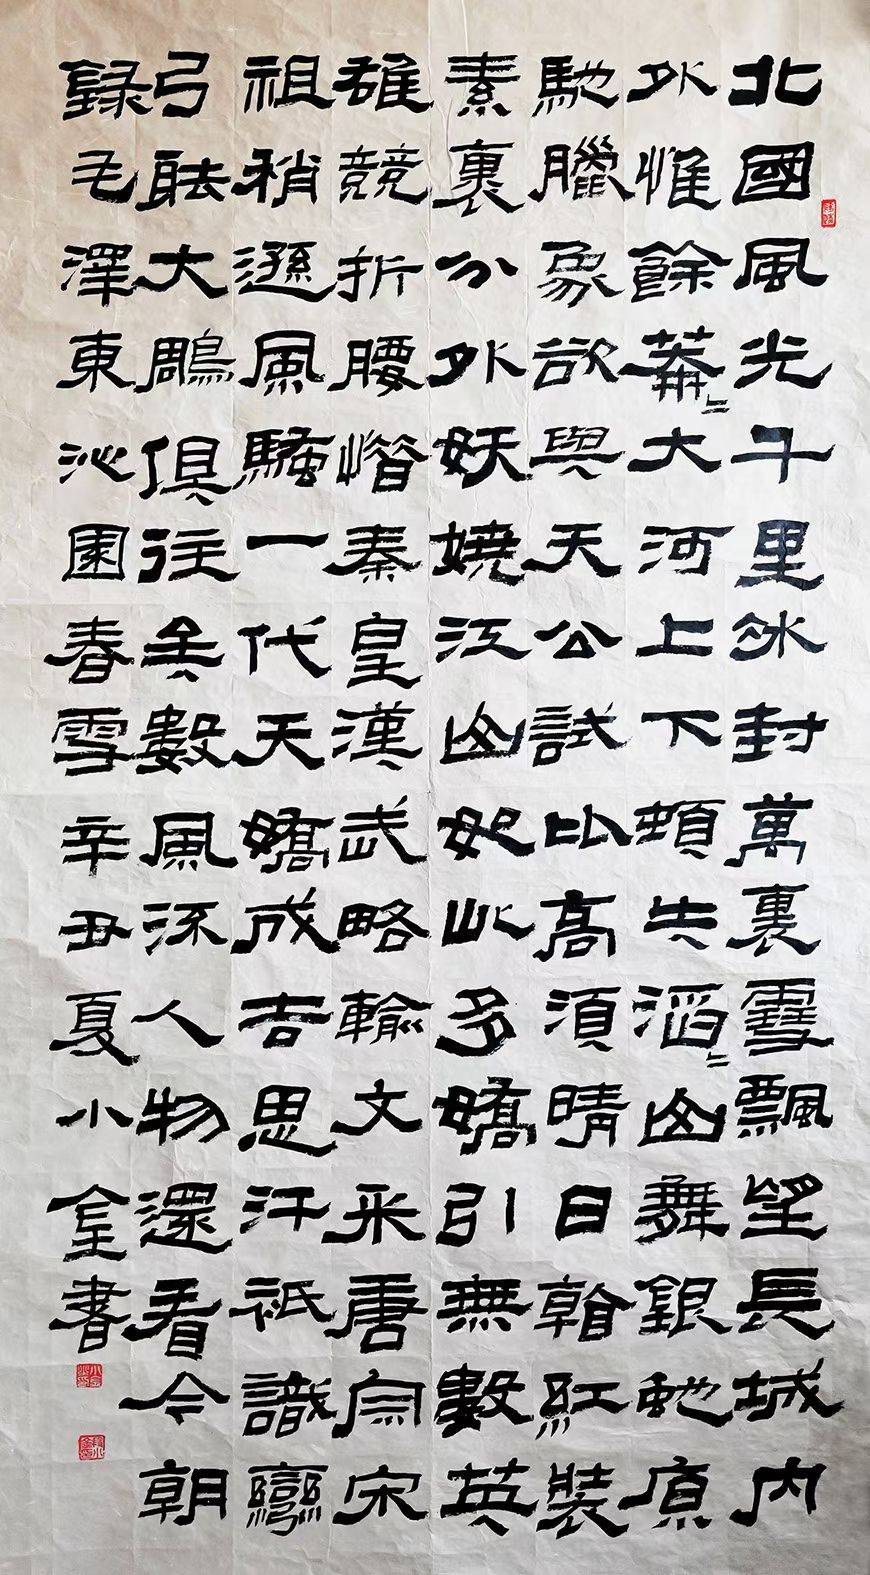 北國風光千里冰封萬裏雪飄望長城内
外惟餘莽〻大河上下頓失滔〻山舞銀蛇原
馳臘象欲與天公試比高須晴日看紅裝
素裏分外妖嬈江山如此多嬌引無數英
雄競折腰惜秦皇漢武略輸文采唐宗宋
祖稍遜風騷一代天嬌成吉思汗衹識彎
弓大鵰俱往矣數風流人物還看今朝
錄毛澤東沁園春雪辛丑夏小金書